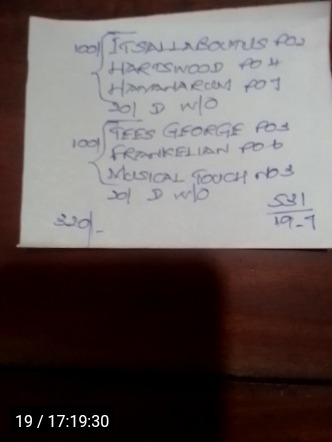 100/ ITSALLABOUTUS PO2
HARTSWOOD PO 4
HAVANARUM PO 7
20/ D W/O
100/ TEES GEORGE PO3
FRANKELIAN PO 6
MUSICAL TOUCH NO3
20/ D W/O
320/-
531
19-7
19 / 17:19:30